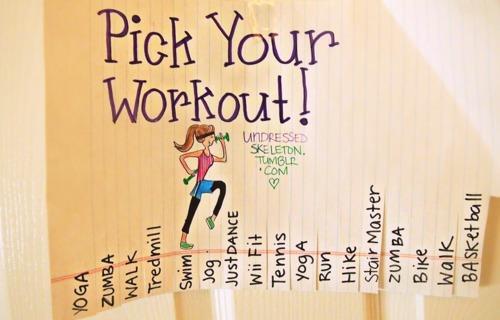 Pick Your
Workout!
UNDRESSED
SKELETON.
TUMBLR
.COM
YOGA
ZUMBA
WALK
Tredmill
Swim
Jog
JustDANCE
Wii Fit
Tennis
YogA
Run
Hike
Stair Master
ZUMBA
Bike
Walk
BASketball